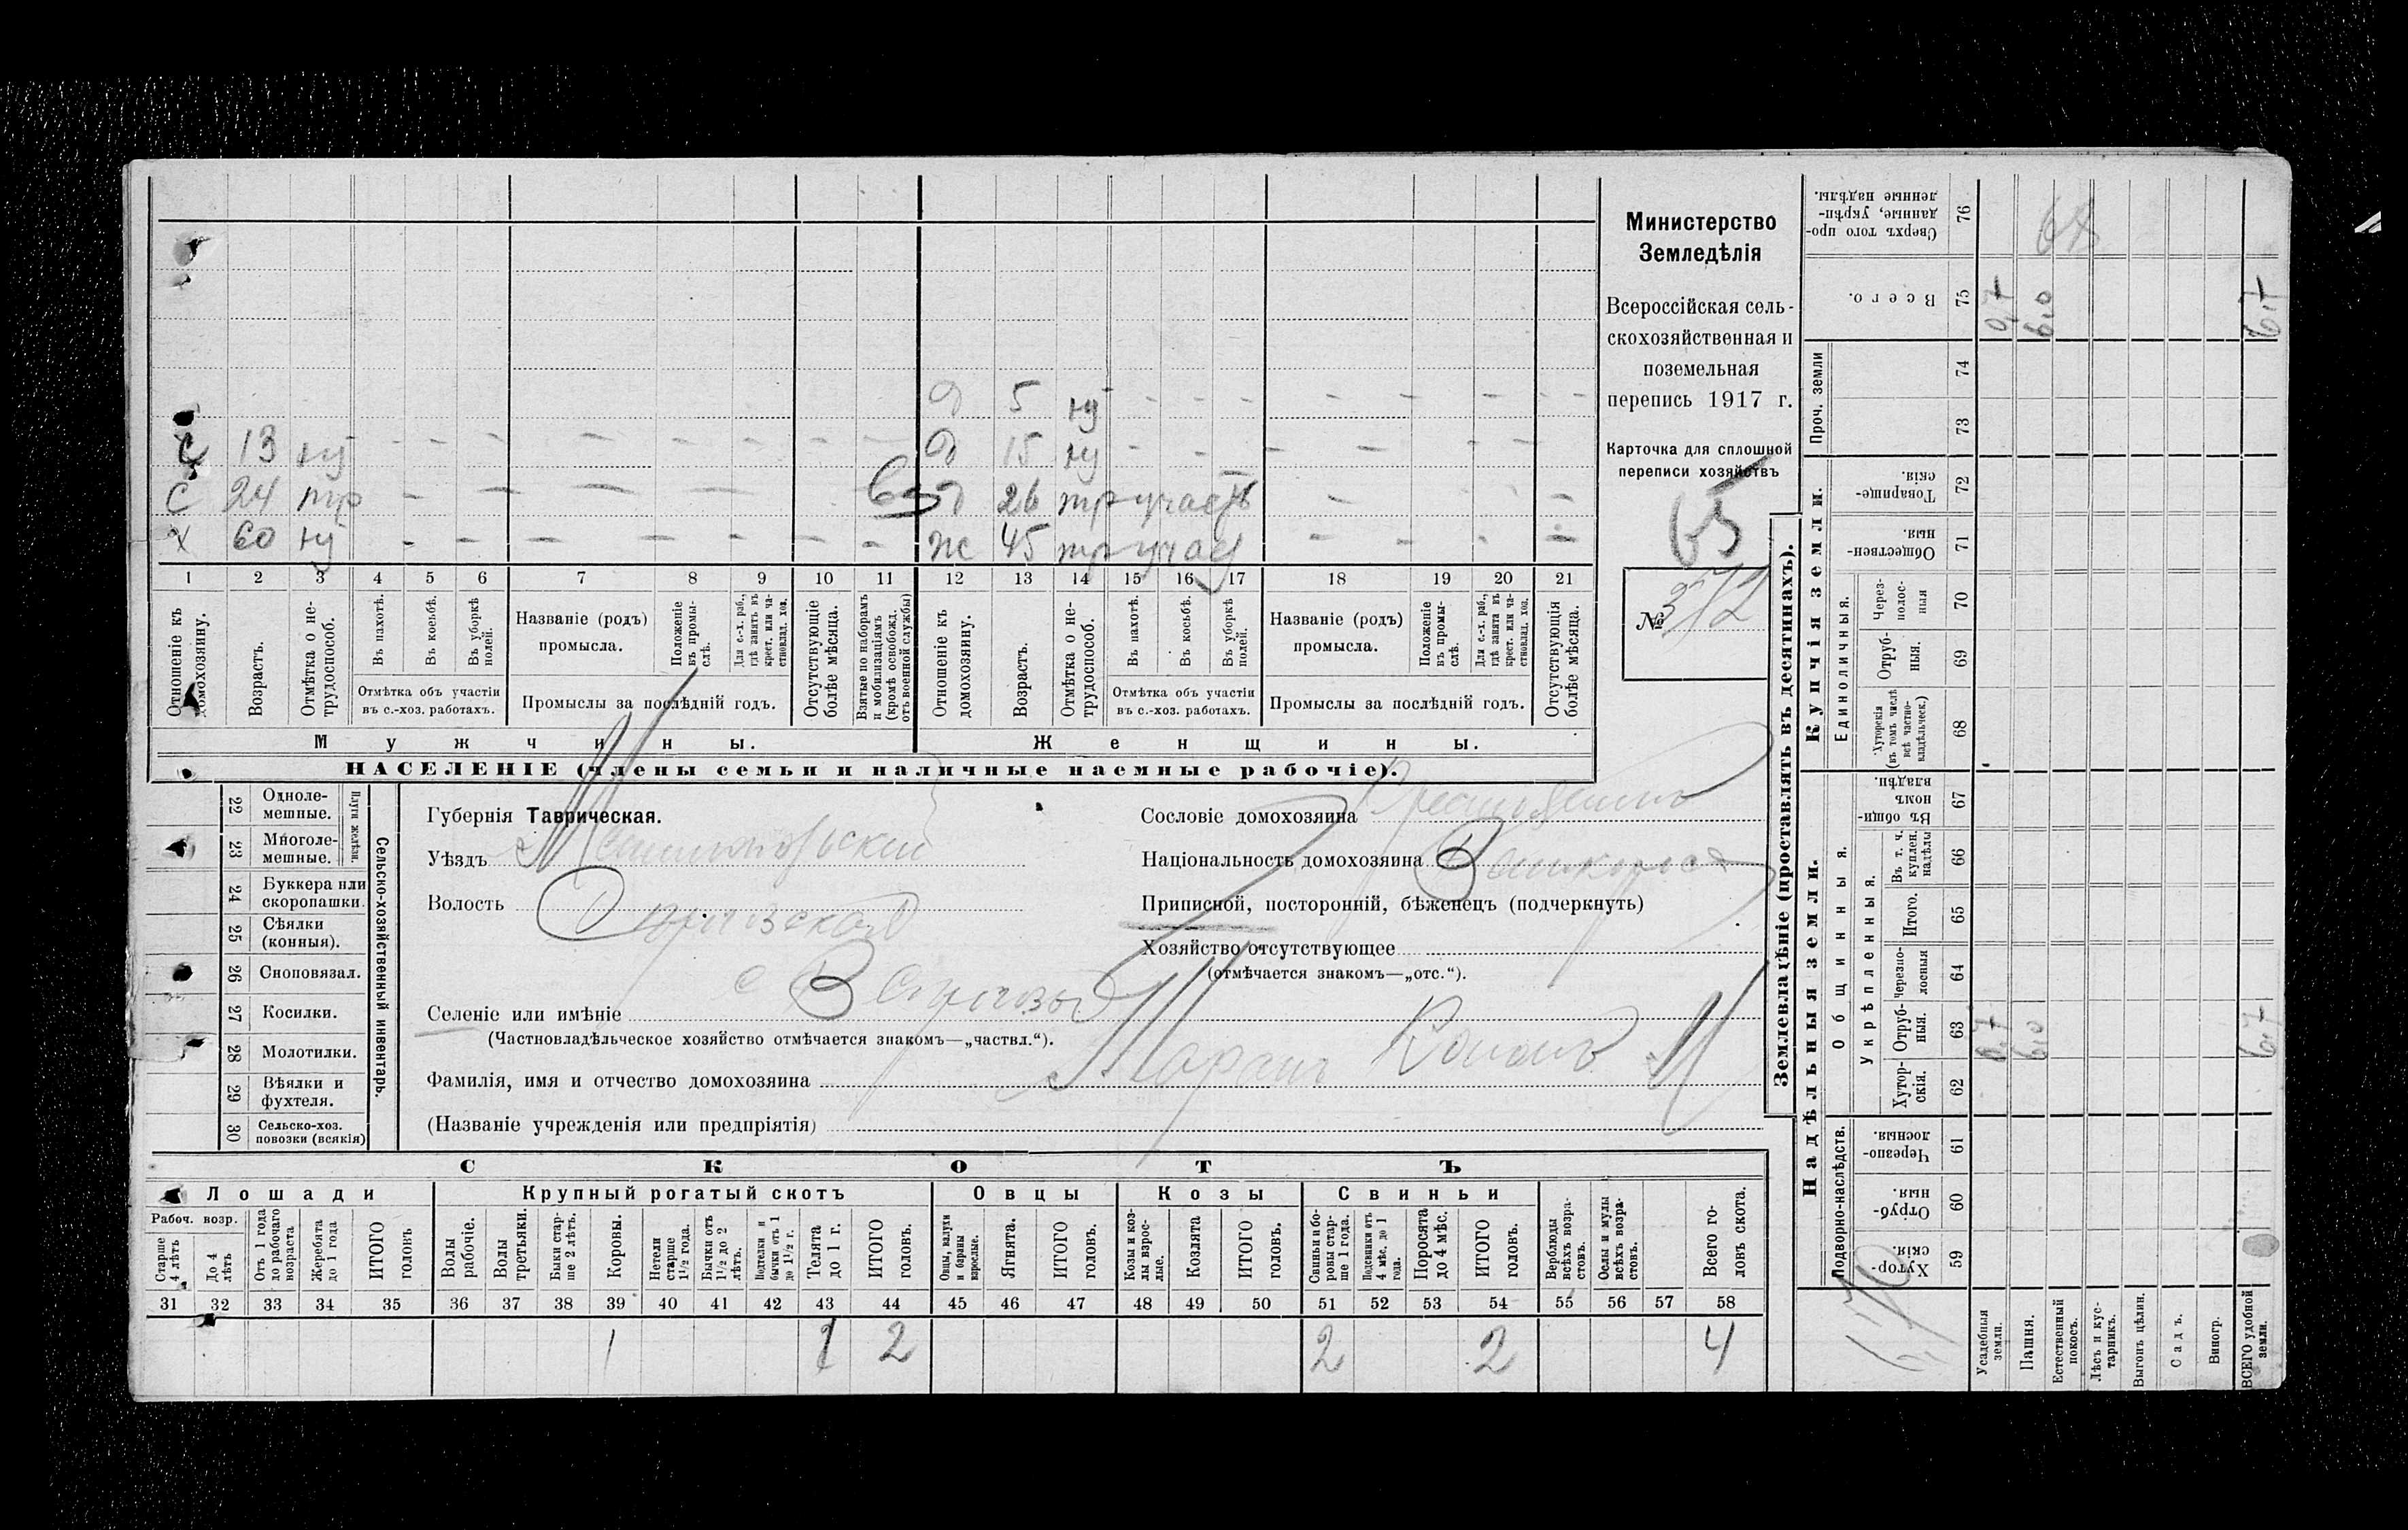 5 ну
С 13 ну 15 ну
С 24 тр 26 тр участ
Х 60 ну ж 45 тр учас
1 2 3 4 5 6 7 8 9 10 11 12 13 14 15 16 17 18 19 20 21
Отношеніе къ домохозяину.
Возрастъ.
Отмѣтка о не-трудоспособ.
Въ пахотѣ.
Въ косьбѣ.
Въ уборкѣ полей.
Отмѣтка объ участіи
въ с.-хоз. работахъ.
Названіе (родъ)
промысла.
Положеніе въ промы-слѣ.
Для с.-х. раб., гдѣ занятъ въ крест. или ча-стновлад. хоз.
Промыслы за послѣдній годъ.
Отсутствующіе болѣе мѣсяца.
Взятые по наборамъ и мобилизаціямъ (кромѣ освобожд. отъ военной службы)
Отношеніе къ домохозяину.
Возрастъ.
Отмѣтка о не-трудоспособ.
Въ пахотѣ.
Въ косьбѣ.
Въ уборкѣ полей.
Отмѣтка объ участіи
въ с.-хоз. работахъ.
Названіе (родъ)
промысла.
Положеніе въ промы-слѣ.
Для с.-х. раб., гдѣ занята въ крест. или ча-стновлад. хоз.
Промыслы за послѣдній годъ.
Отсутствующія болѣе мѣсяца.
Мужчины.
Женщины.
НАСЕЛЕНІЕ (члены семьи и наличные наемные рабочіе).
Министерство
Земледѣлія
Всероссійская сель-
скохозяйственная и
поземельная
перепись 1917 г.
Карточка для сплошной
переписи хозяйствъ
65
№ 372
Плуги желѣзн.
22 Однолемешные.
23 Многолемешные.
24 Буккера или скоропашки.
25 Сѣялки (конныя).
26 Сноповязал.
27 Косилки.
28 Молотилки.
29 Вѣялки и фухтеля.
30 Сельско-хоз. повозки (всякія)
Сельско-хозяйственный инвентарь.
Губернія Таврическая.
Уѣздъ Мелитопольскій
Волость
Селеніе или имѣніе
(Частновладѣльческое хозяйство отмѣчается знакомъ—„частвл.“).
Фамилія, имя и отчество домохозяина
(Названіе учрежденія или предпріятія)
Сословіе домохозяина
Національность домохозяина
Приписной, посторонній, бѣженецъ (подчеркнуть)
Хозяйство отсутствующее
(отмѣчается знакомъ—„отс.“).
СКОТЪ
Лошади
Крупный рогатый скотъ
Овцы
Козы
Свиньи
Рабоч. возр.
Старше 4 лѣтъ
До 4 лѣтъ
Отъ 1 года до рабочаго возраста
Жеребята до 1 года
ИТОГО головъ
Волы рабочіе.
Волы третьяки.
Быки стар-ше 2 лѣтъ.
Коровы.
Нетели старше 1½ года.
Бычки отъ 1½ до 2 лѣтъ.
Подтелки и бычки отъ 1 до 1½ г.
Телята до 1 г.
ИТОГО головъ.
Овцы, валухи и бараны взрослые.
Ягнята.
ИТОГО головъ.
Козы и коз-лы взрос-лые.
Козлята
ИТОГО головъ.
Свиньи и бо-ровы стар-ше 1 года.
Подсвинки отъ 4 мѣс. до 1 года.
Поросята до 4 мѣс.
ИТОГО головъ.
Верблюды всѣхъ возра-стовъ.
Ослы и мулы всѣхъ возра-стовъ.
Всего го-ловъ скота.
31 32 33 34 35 36 37 38 39 40 41 42 43 44 45 46 47 48 49 50 51 52 53 54 55 56 57 58
1 1 2 2 2 4
Землевладѣніе (проставлять въ десятинахъ).
Надѣльныя земли.
Купчія земли.
Проч. земли
Подворно-наслѣдств.
Общинныя.
Укрѣпленныя.
Единоличныя.
59 Хутор-скія.
60 Отруб-ныя.
61 Черезпо-лосныя.
62 Хутор-скія.
63 Отруб-ныя.
64 Черезпо-лосныя
65 Итого.
66 Въ т. ч. куплен. надѣлы
67 Въ общи-номъ владѣн.
68 Хуторскія (въ томъ числѣ всѣ частно-владѣльческ.)
69 Отруб-ныя.
70 Через-полос-ныя
71 Обществен-ныя.
72 Товарище-скія.
73
74
75 Всего.
76 Сверхъ того про-данные, укрѣп-ленные надѣлы.
Усадебныя земли. 0,7 0,7
Пашня. 6,0 6,0
Естественный покосъ.
Лѣсъ и кус-тарникъ.
Выгонъ цѣлин.
Садъ.
Виногр.
ВСЕГО удобной земли. 6,7 6,7